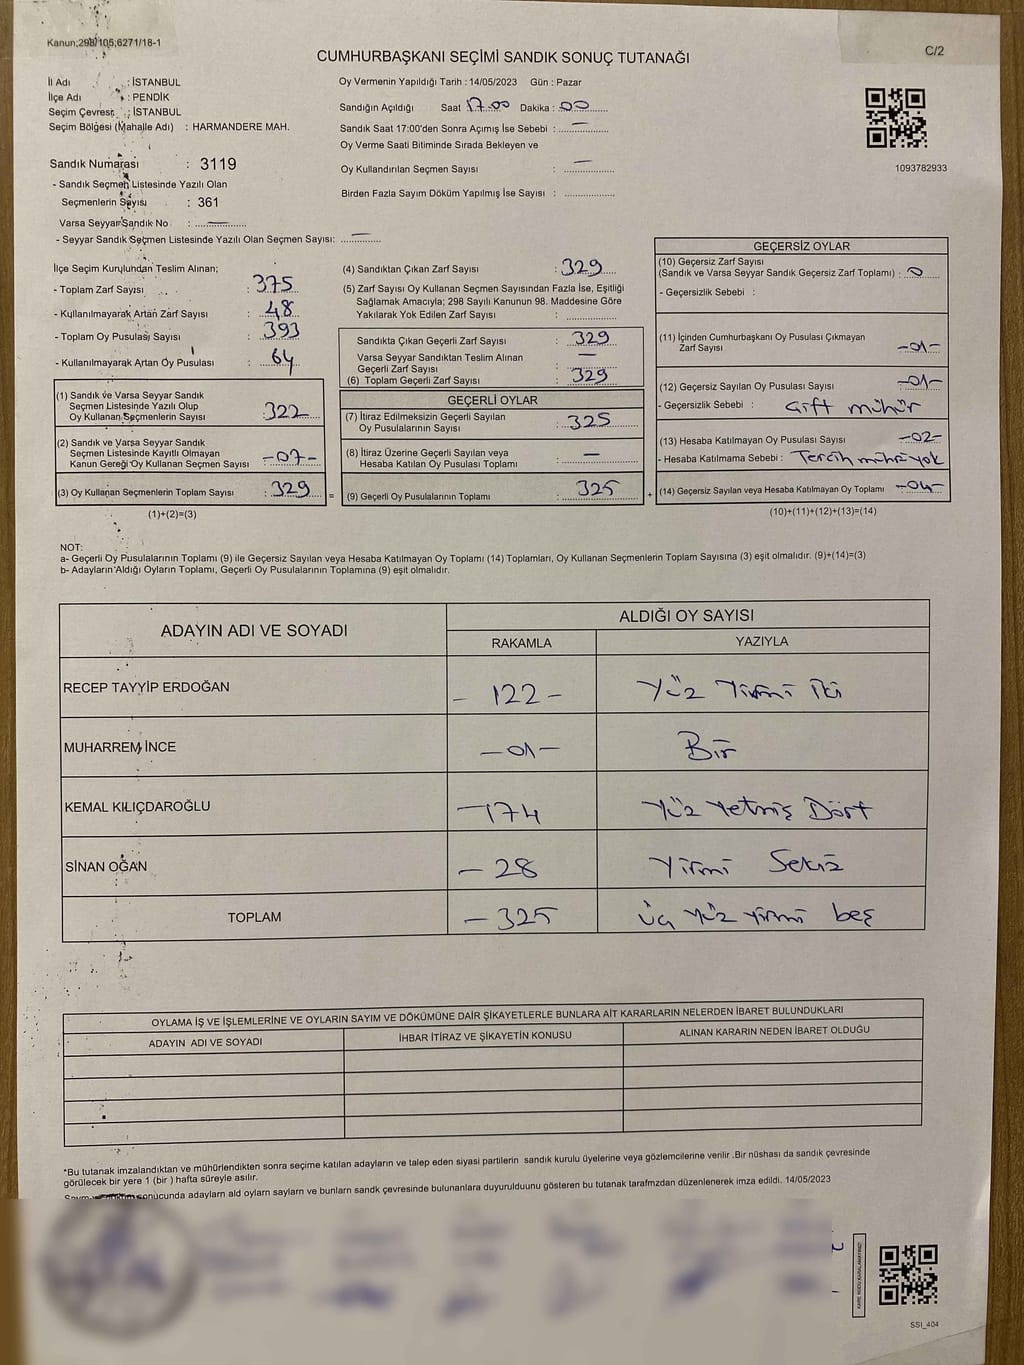 Kanun;298/105;6271/18-1
C/2
CUMHURBAŞKANI SEÇİMİ SANDIK SONUÇ TUTANAĞI
İl Adı : İSTANBUL
İlçe Adı : PENDİK
Seçim Çevresi : İSTANBUL
Seçim Bölgesi (Mahalle Adı) : HARMANDERE MAH.
Sandık Numarası : 3119
- Sandık Seçmen Listesinde Yazılı Olan
Seçmenlerin Sayısı : 361
Varsa Seyyar Sandık No : —
- Seyyar Sandık Seçmen Listesinde Yazılı Olan Seçmen Sayısı: —
Oy Vermenin Yapıldığı Tarih : 14/05/2023 Gün : Pazar
Sandığın Açıldığı Saat 17.00 Dakika : 00
Sandık Saat 17:00'den Sonra Açımış İse Sebebi : —
Oy Verme Saati Bitiminde Sırada Bekleyen ve
Oy Kullandırılan Seçmen Sayısı : —
Birden Fazla Sayım Döküm Yapılmış İse Sayısı :
1093782933
İlçe Seçim Kurulundan Teslim Alınan;
- Toplam Zarf Sayısı : 375
- Kullanılmayarak Artan Zarf Sayısı : 48
- Toplam Oy Pusulası Sayısı : 393
- Kullanılmayarak Artan Oy Pusulası : 64
(1) Sandık ve Varsa Seyyar Sandık
Seçmen Listesinde Yazılı Olup
Oy Kullanan Seçmenlerin Sayısı : 322
(2) Sandık ve Varsa Seyyar Sandık
Seçmen Listesinde Kayıtlı Olmayan
Kanun Gereği Oy Kullanan Seçmen Sayısı -07-
(3) Oy Kullanan Seçmenlerin Toplam Sayısı : 329 =
(1)+(2)=(3)
(4) Sandıktan Çıkan Zarf Sayısı : 329
(5) Zarf Sayısı Oy Kullanan Seçmen Sayısından Fazla İse, Eşitliği
Sağlamak Amacıyla; 298 Sayılı Kanunun 98. Maddesine Göre
Yakılarak Yok Edilen Zarf Sayısı :
Sandıkta Çıkan Geçerli Zarf Sayısı : 329
Varsa Seyyar Sandıktan Teslim Alınan
Geçerli Zarf Sayısı : —
(6) Toplam Geçerli Zarf Sayısı : 329
GEÇERLİ OYLAR
(7) İtiraz Edilmeksizin Geçerli Sayılan
Oy Pusulalarının Sayısı : 325
(8) İtiraz Üzerine Geçerli Sayılan veya
Hesaba Katılan Oy Pusulası Toplamı : —
(9) Geçerli Oy Pusulalarının Toplamı : 325 +
GEÇERSİZ OYLAR
(10) Geçersiz Zarf Sayısı
(Sandık ve Varsa Seyyar Sandık Geçersiz Zarf Toplamı) : 0
- Geçersizlik Sebebi :
(11) İçinden Cumhurbaşkanı Oy Pusulası Çıkmayan
Zarf Sayısı -01-
(12) Geçersiz Sayılan Oy Pusulası Sayısı -01-
- Geçersizlik Sebebi : Çift mühür
(13) Hesaba Katılmayan Oy Pusulası Sayısı -02-
- Hesaba Katılmama Sebebi : Tercih mührü yok
(14) Geçersiz Sayılan veya Hesaba Katılmayan Oy Toplamı -04-
(10)+(11)+(12)+(13)=(14)
NOT:
a- Geçerli Oy Pusulalarının Toplamı (9) ile Geçersiz Sayılan veya Hesaba Katılmayan Oy Toplamı (14) Toplamları, Oy Kullanan Seçmenlerin Toplam Sayısına (3) eşit olmalıdır. (9)+(14)=(3)
b- Adayların Aldığı Oyların Toplamı, Geçerli Oy Pusulalarının Toplamına (9) eşit olmalıdır.
ADAYIN ADI VE SOYADI
ALDIĞI OY SAYISI
RAKAMLA YAZIYLA
RECEP TAYYİP ERDOĞAN - 122 - Yüz Yirmi İki
MUHARREM İNCE -01- Bir
KEMAL KILIÇDAROĞLU -174 Yüz Yetmiş Dört
SİNAN OĞAN - 28 Yirmi Sekiz
TOPLAM - 325 üç yüz yirmi beş
OYLAMA İŞ VE İŞLEMLERİNE VE OYLARIN SAYIM VE DÖKÜMÜNE DAİR ŞİKAYETLERLE BUNLARA AİT KARARLARIN NELERDEN İBARET BULUNDUKLARI
ADAYIN ADI VE SOYADI İHBAR İTİRAZ VE ŞİKAYETİN KONUSU ALINAN KARARIN NEDEN İBARET OLDUĞU
*Bu tutanak imzalandıktan ve mühürlendikten sonra seçime katılan adayların ve talep eden siyasi partilerin sandık kurulu üyelerine veya gözlemcilerine verilir .Bir nüshası da sandık çevresinde
görülecek bir yere 1 (bir ) hafta süreyle asılır.
sonucunda adayların ald oyları saylarn ve bunların sandk çevresinde bulunanlara duyurulduunu gösteren bu tutanak tarafmzdan düzenlenerek imza edildi. 14/05/2023
SSI_404